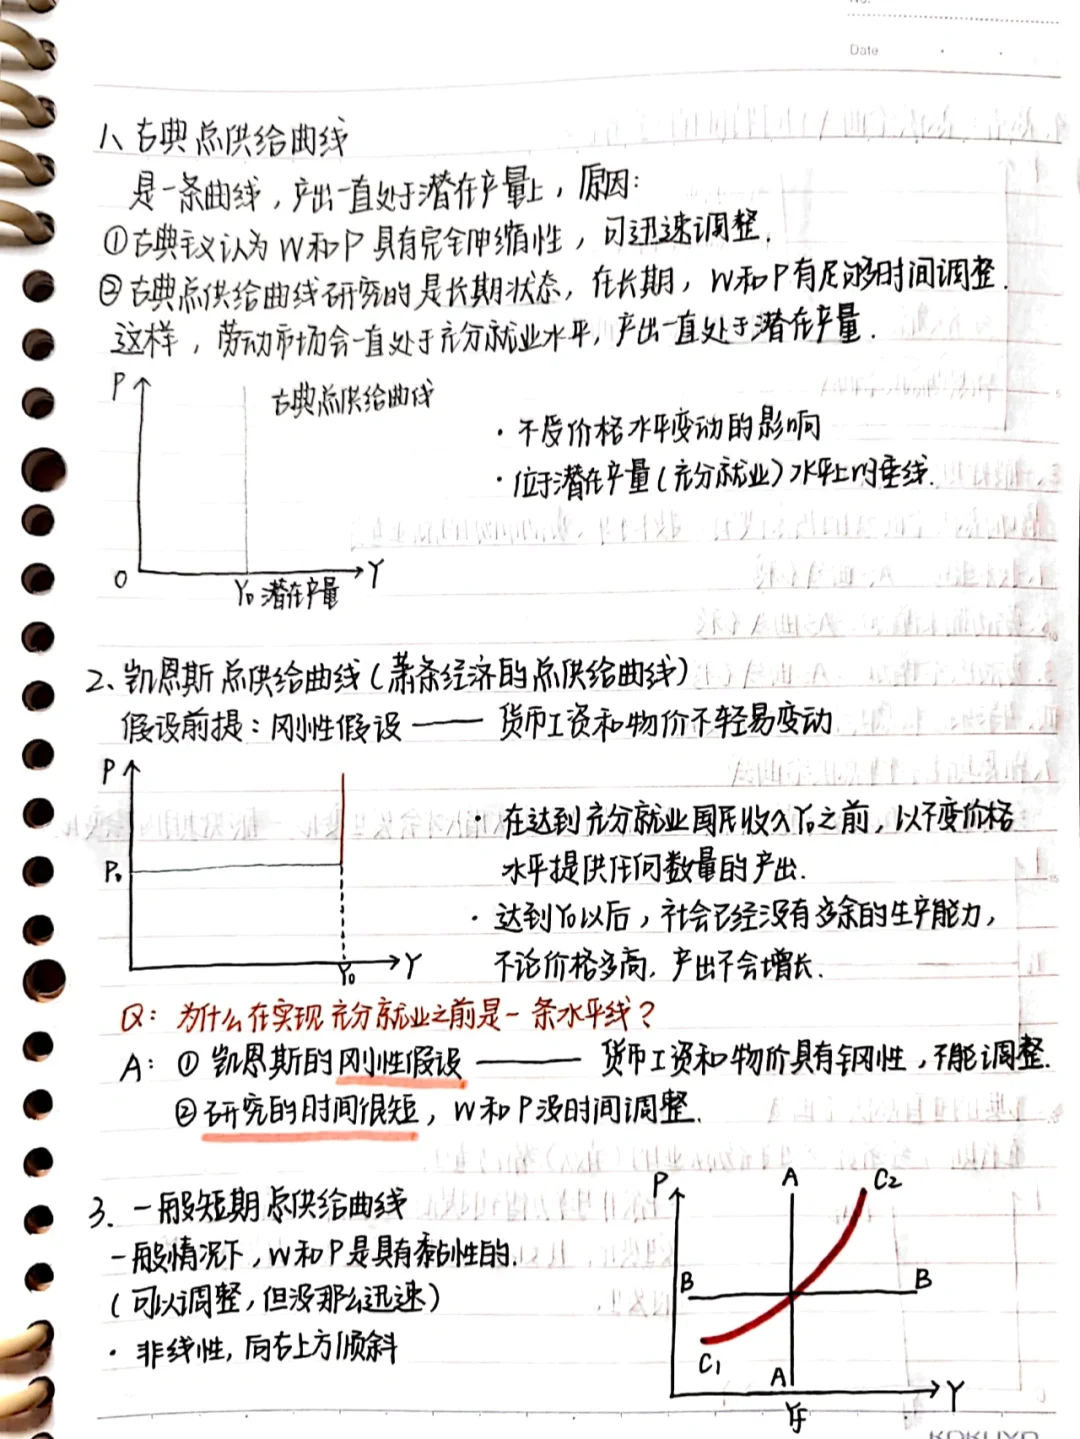 No.
Date
1、古典总供给曲线
是一条曲线，产出一直处于潜在产量上，原因：
①古典主义认为W和P具有完全伸缩性，可迅速调整．
②古典总供给曲线研究的是长期状态，在长期，W和P有足够时间调整．
这样，劳动市场会一直处于充分就业水平，产出一直处于潜在产量．
P
古典总供给曲线
·不受价格水平变动的影响
·位于潜在产量（充分就业）水平上的垂线．
O
Y₀ 潜在产量
Y
2、凯恩斯总供给曲线（萧条经济的总供给曲线）
假设前提：刚性假设 —— 货币工资和物价不轻易变动
P
·在达到充分就业国民收入Y₀之前，以不变价格
水平提供任何数量的产出．
P₀
·达到Y₀以后，社会已经没有多余的生产能力，
不论价格多高，产出不会增长．
Y₀
Y
Q：为什么在实现充分就业之前是一条水平线？
A：①凯恩斯的刚性假设 —— 货币工资和物价具有钢性，不能调整．
②研究的时间很短，W和P没时间调整．
3、一般短期总供给曲线
一般情况下，W和P是具有黏性的．
（可以调整，但没那么迅速）
·非线性，向右上方倾斜
P
A
C₂
B
B
C₁
A
Y
Yf
KOKUYO